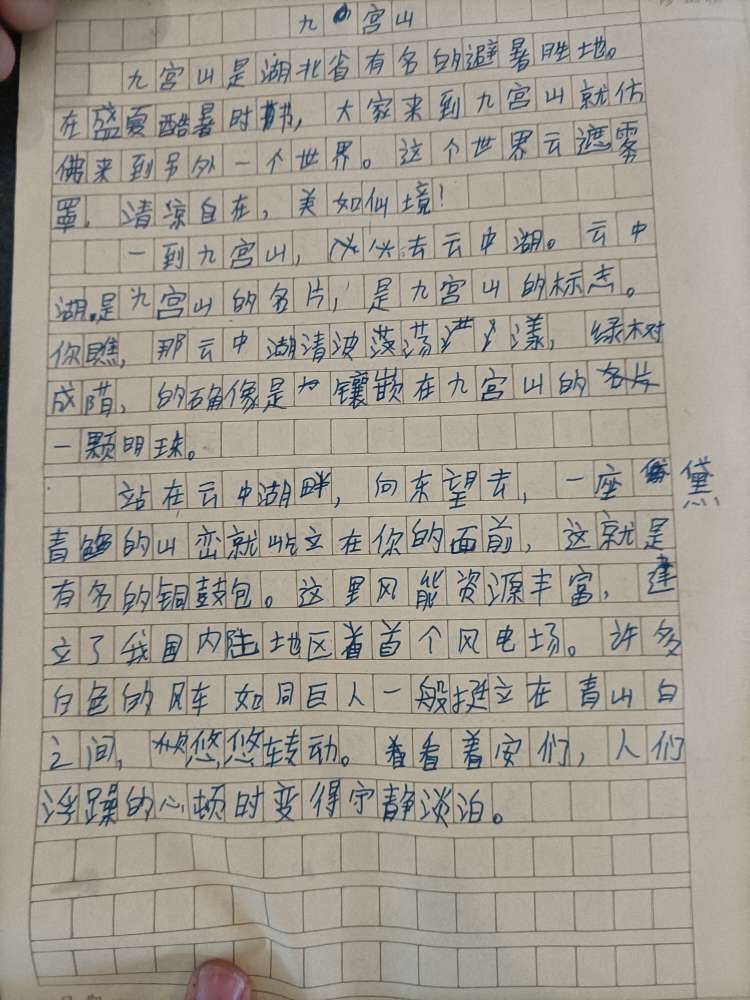 九宫山
九宫山是湖北省有名的避暑胜地。
在盛夏酷暑时节，大家来到九宫山就仿
佛来到另外一个世界。这个世界云遮雾
罩，清凉自在，美如仙境！
一到九宫山，必去云中湖。云中
湖是九宫山的名片，是九宫山的标志。
你瞧，那云中湖清波荡漾，绿树
成荫，的确像是镶嵌在九宫山的
一颗明珠。
站在云中湖畔，向东望去，一座黛
青的山峦就屹立在你的面前，这就是
有名的铜鼓包。这里风能资源丰富，建
立了我国内陆地区首个风电场。许多
白色的风车如同巨人一般挺立在青山白
之间，悠悠转动。看着们，人们
浮躁的心顿时变得宁静淡泊。